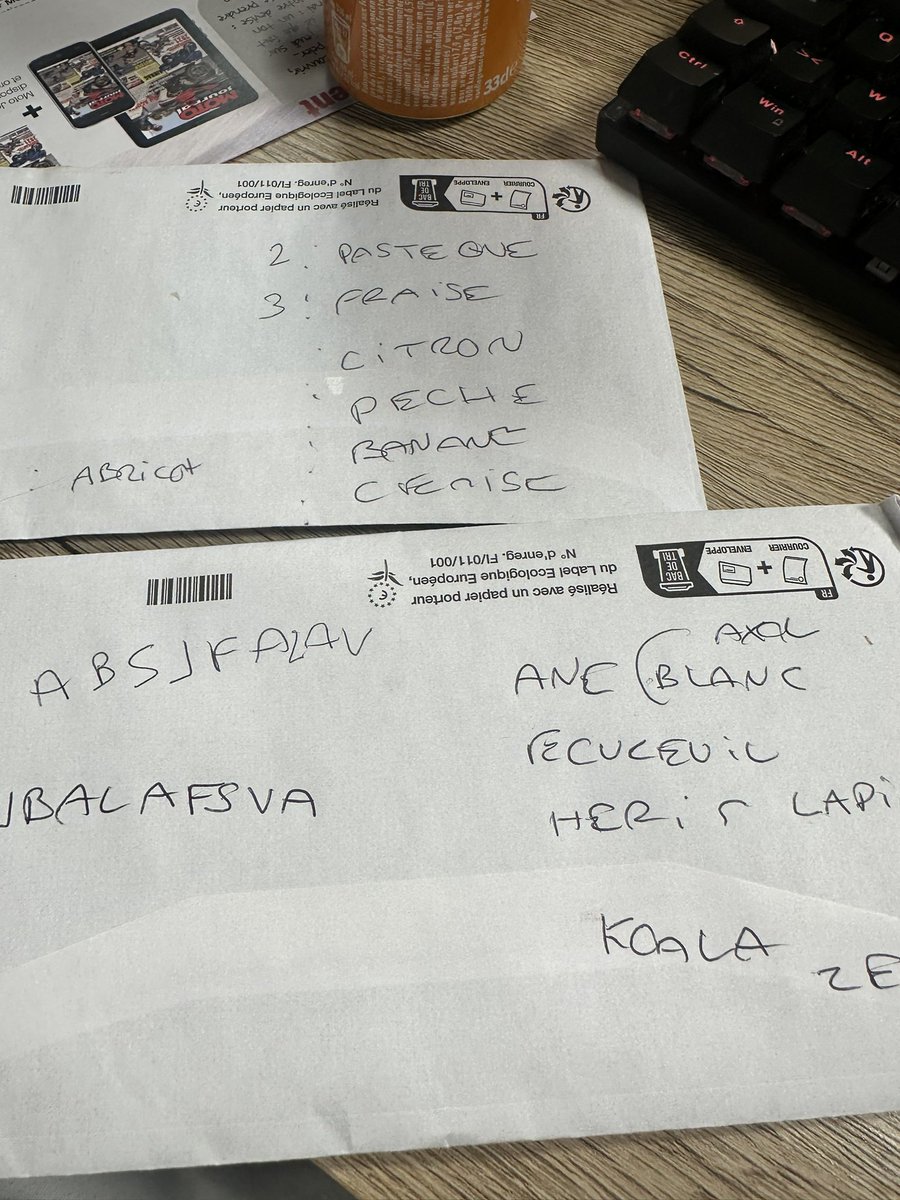 MOTO
33cl
Ctrl
Win
Alt
Q
W
Réalisé avec un papier porteur
du Label Ecologique Européen,
N° d'enreg. FI/011/001
FR
COURRIER + ENVELOPPE
BAC DE TRI
2 : PASTEQUE
3 : FRAISE
CITRON
PECHE
BANANE
ABRICOT
CERISE
Réalisé avec un papier porteur
du Label Ecologique Européen,
N° d'enreg. FI/011/001
FR
COURRIER + ENVELOPPE
BAC DE TRI
ABSJFALAV
AXOL
ANE (BLANC
ECUCEUIL
JBALAFSVA
HERIS LAPI
KOALA
ZE